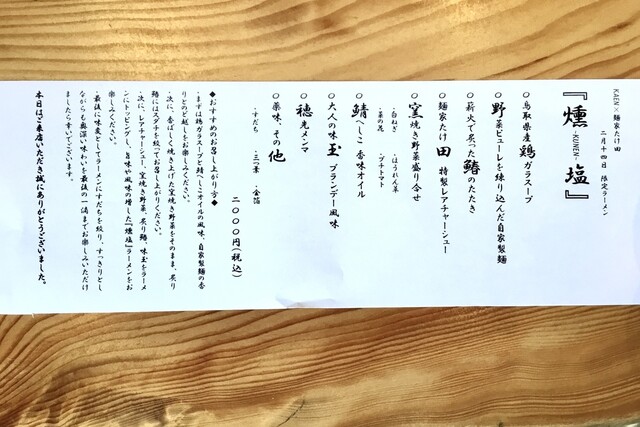 KAEN×麺家たけ田
二月十四日 限定ラーメン
『燻塩』
-KUNEN-
○鳥取県産 鶏ガラスープ
○野菜ピューレを練り込んだ自家製麺
○薪火で炙った鰆のたたき
○麺家たけ田 特製レアチャーシュー
○窯焼き野菜盛り合せ
・白ねぎ ・ほうれん草
・菜の花 ・プチトマト
○鯖へしこ 香味オイル
○大人の味玉 ブランデー風味
○穂先メンマ
○薬味、その他
・すだち ・三つ葉 ・金箔
二〇〇〇円(税込)
◆おすすめのお召し上がり方◆
・まずは鶏ガラスープと鯖へしこオイルの風味、自家製麺の香
りとのど越しをお楽しみください。
・次に、香ばしく焼き上げた窯焼き野菜をそのまま、炙り
鰆にはスダチを絞ってお召し上がりください。
・次に、レアチャーシュー、窯焼き野菜、炙り鰆、味玉をラーメ
ンにトッピングし、旨味や風味の増した『燻塩』ラーメンをお
楽しみください。
・最後に味変としてラーメンにすだちを絞り、すっきりとし
ながらも奥深い味わいを最後の一滴までお楽しみいただけ
ましたら幸いでございます。
本日はご来店いただき誠にありがとうございました。